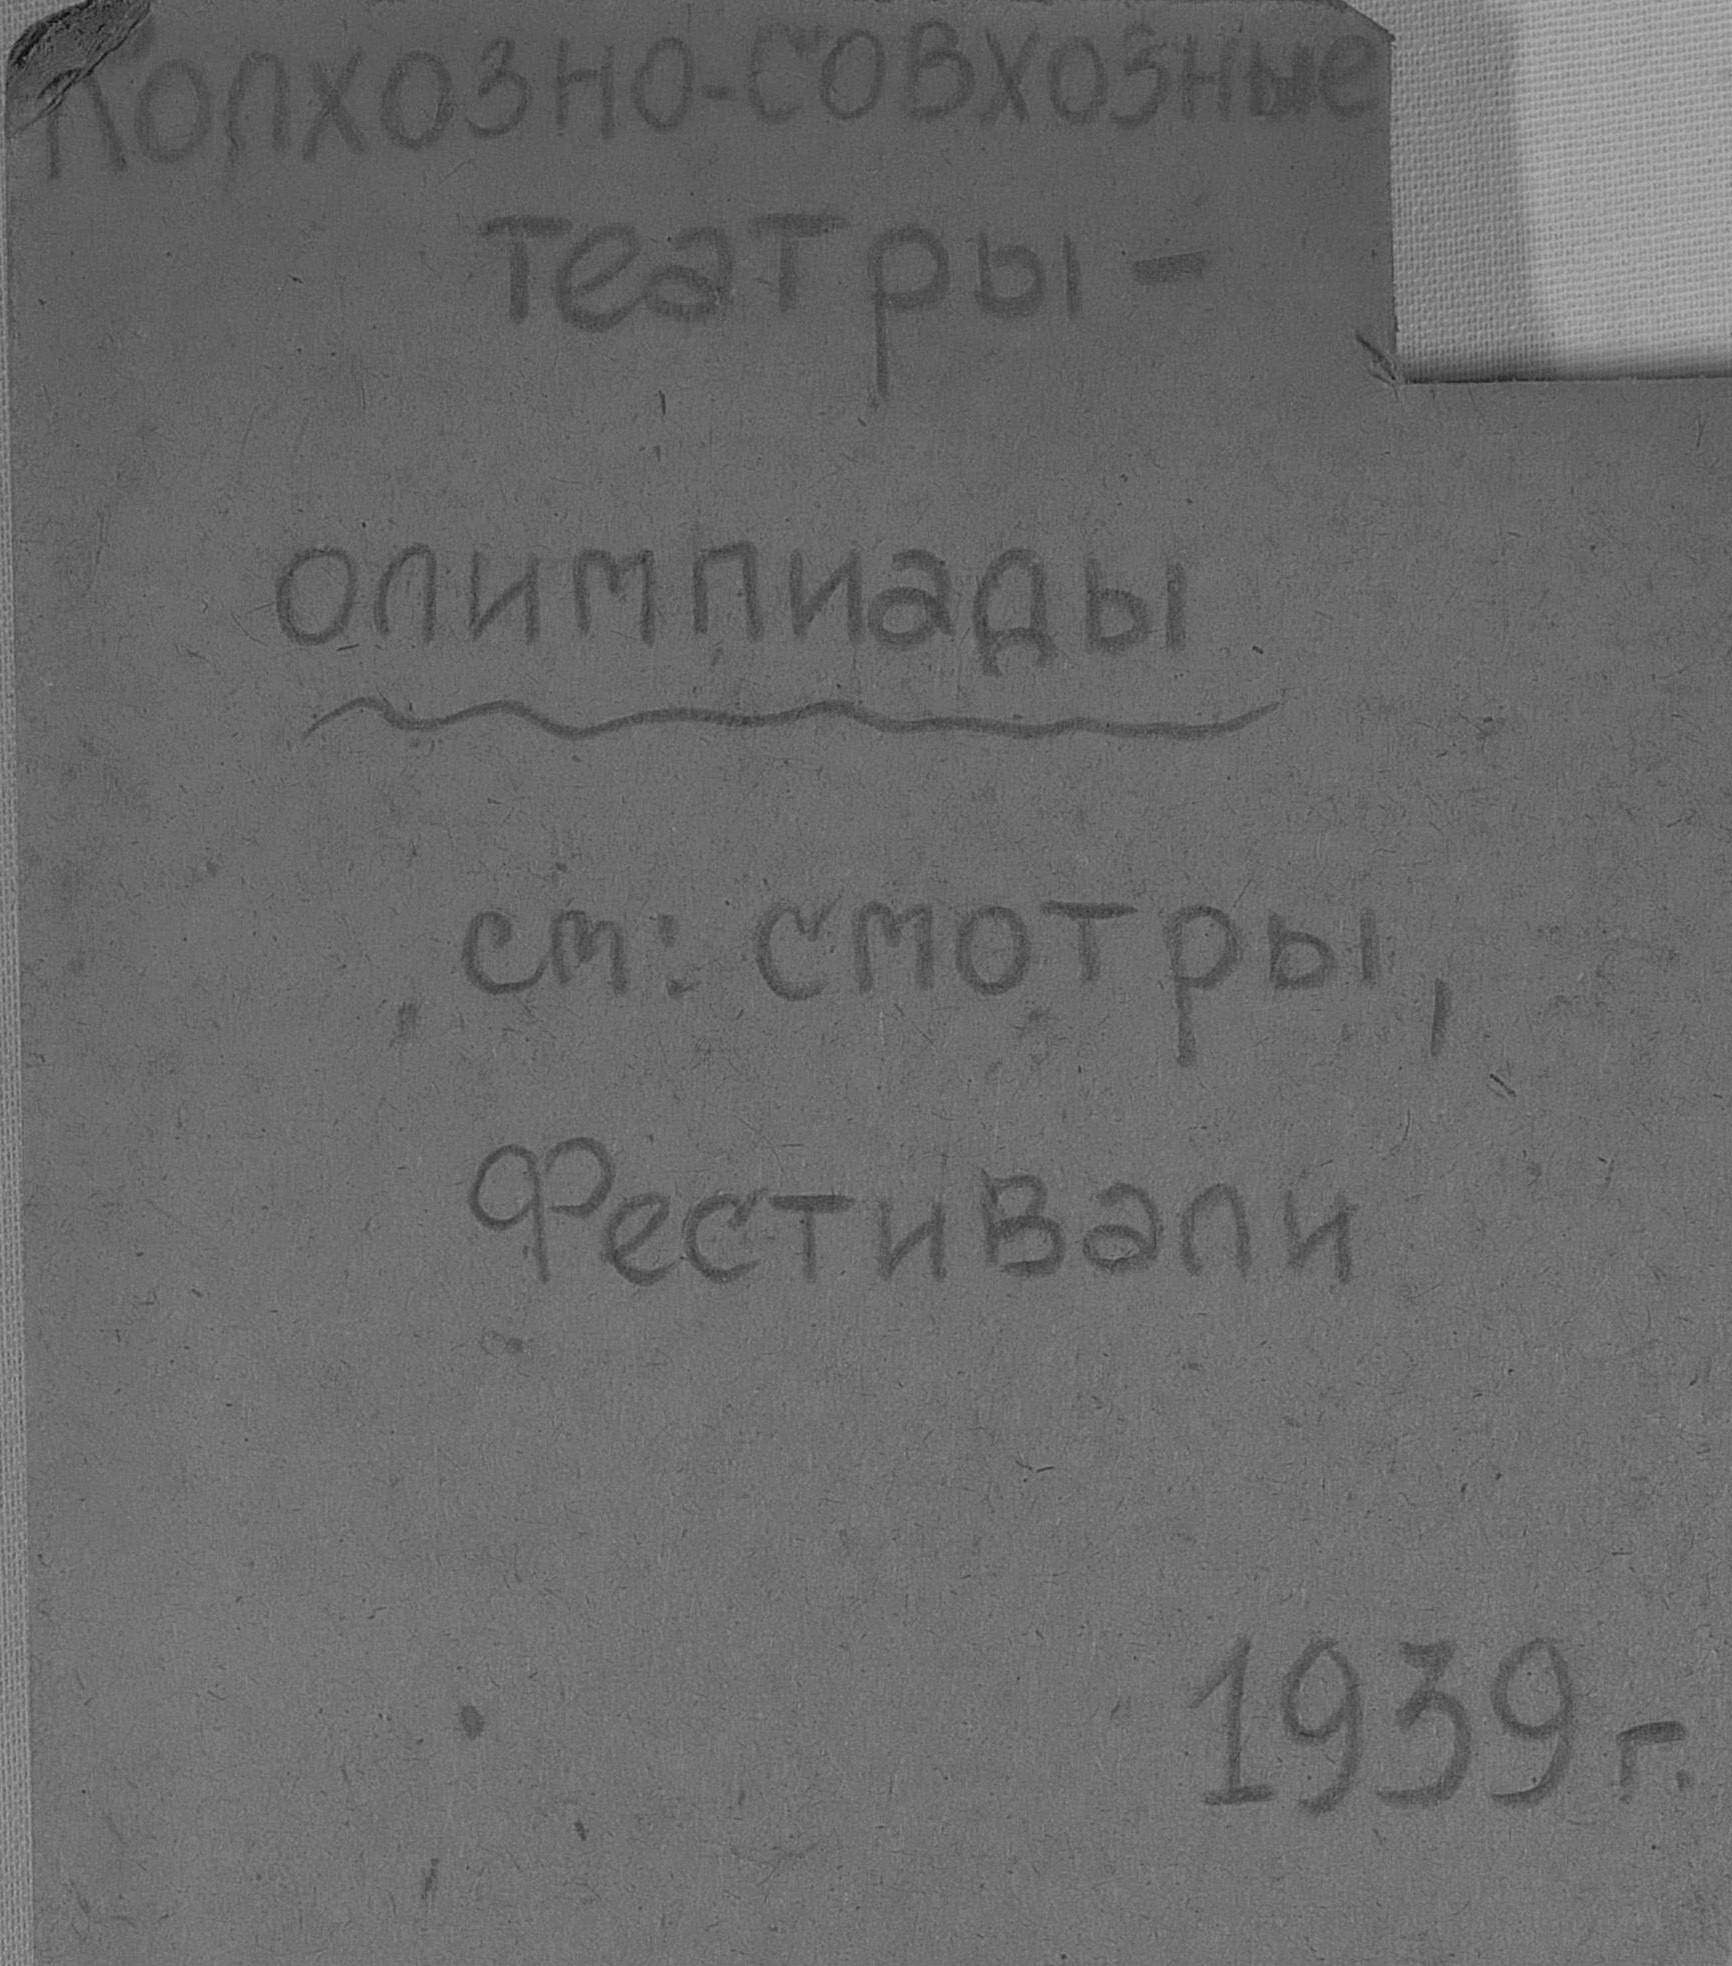 Колхозно-совхозные
театры -
олимпиады
см: смотры,
Фестивали
1939 г.